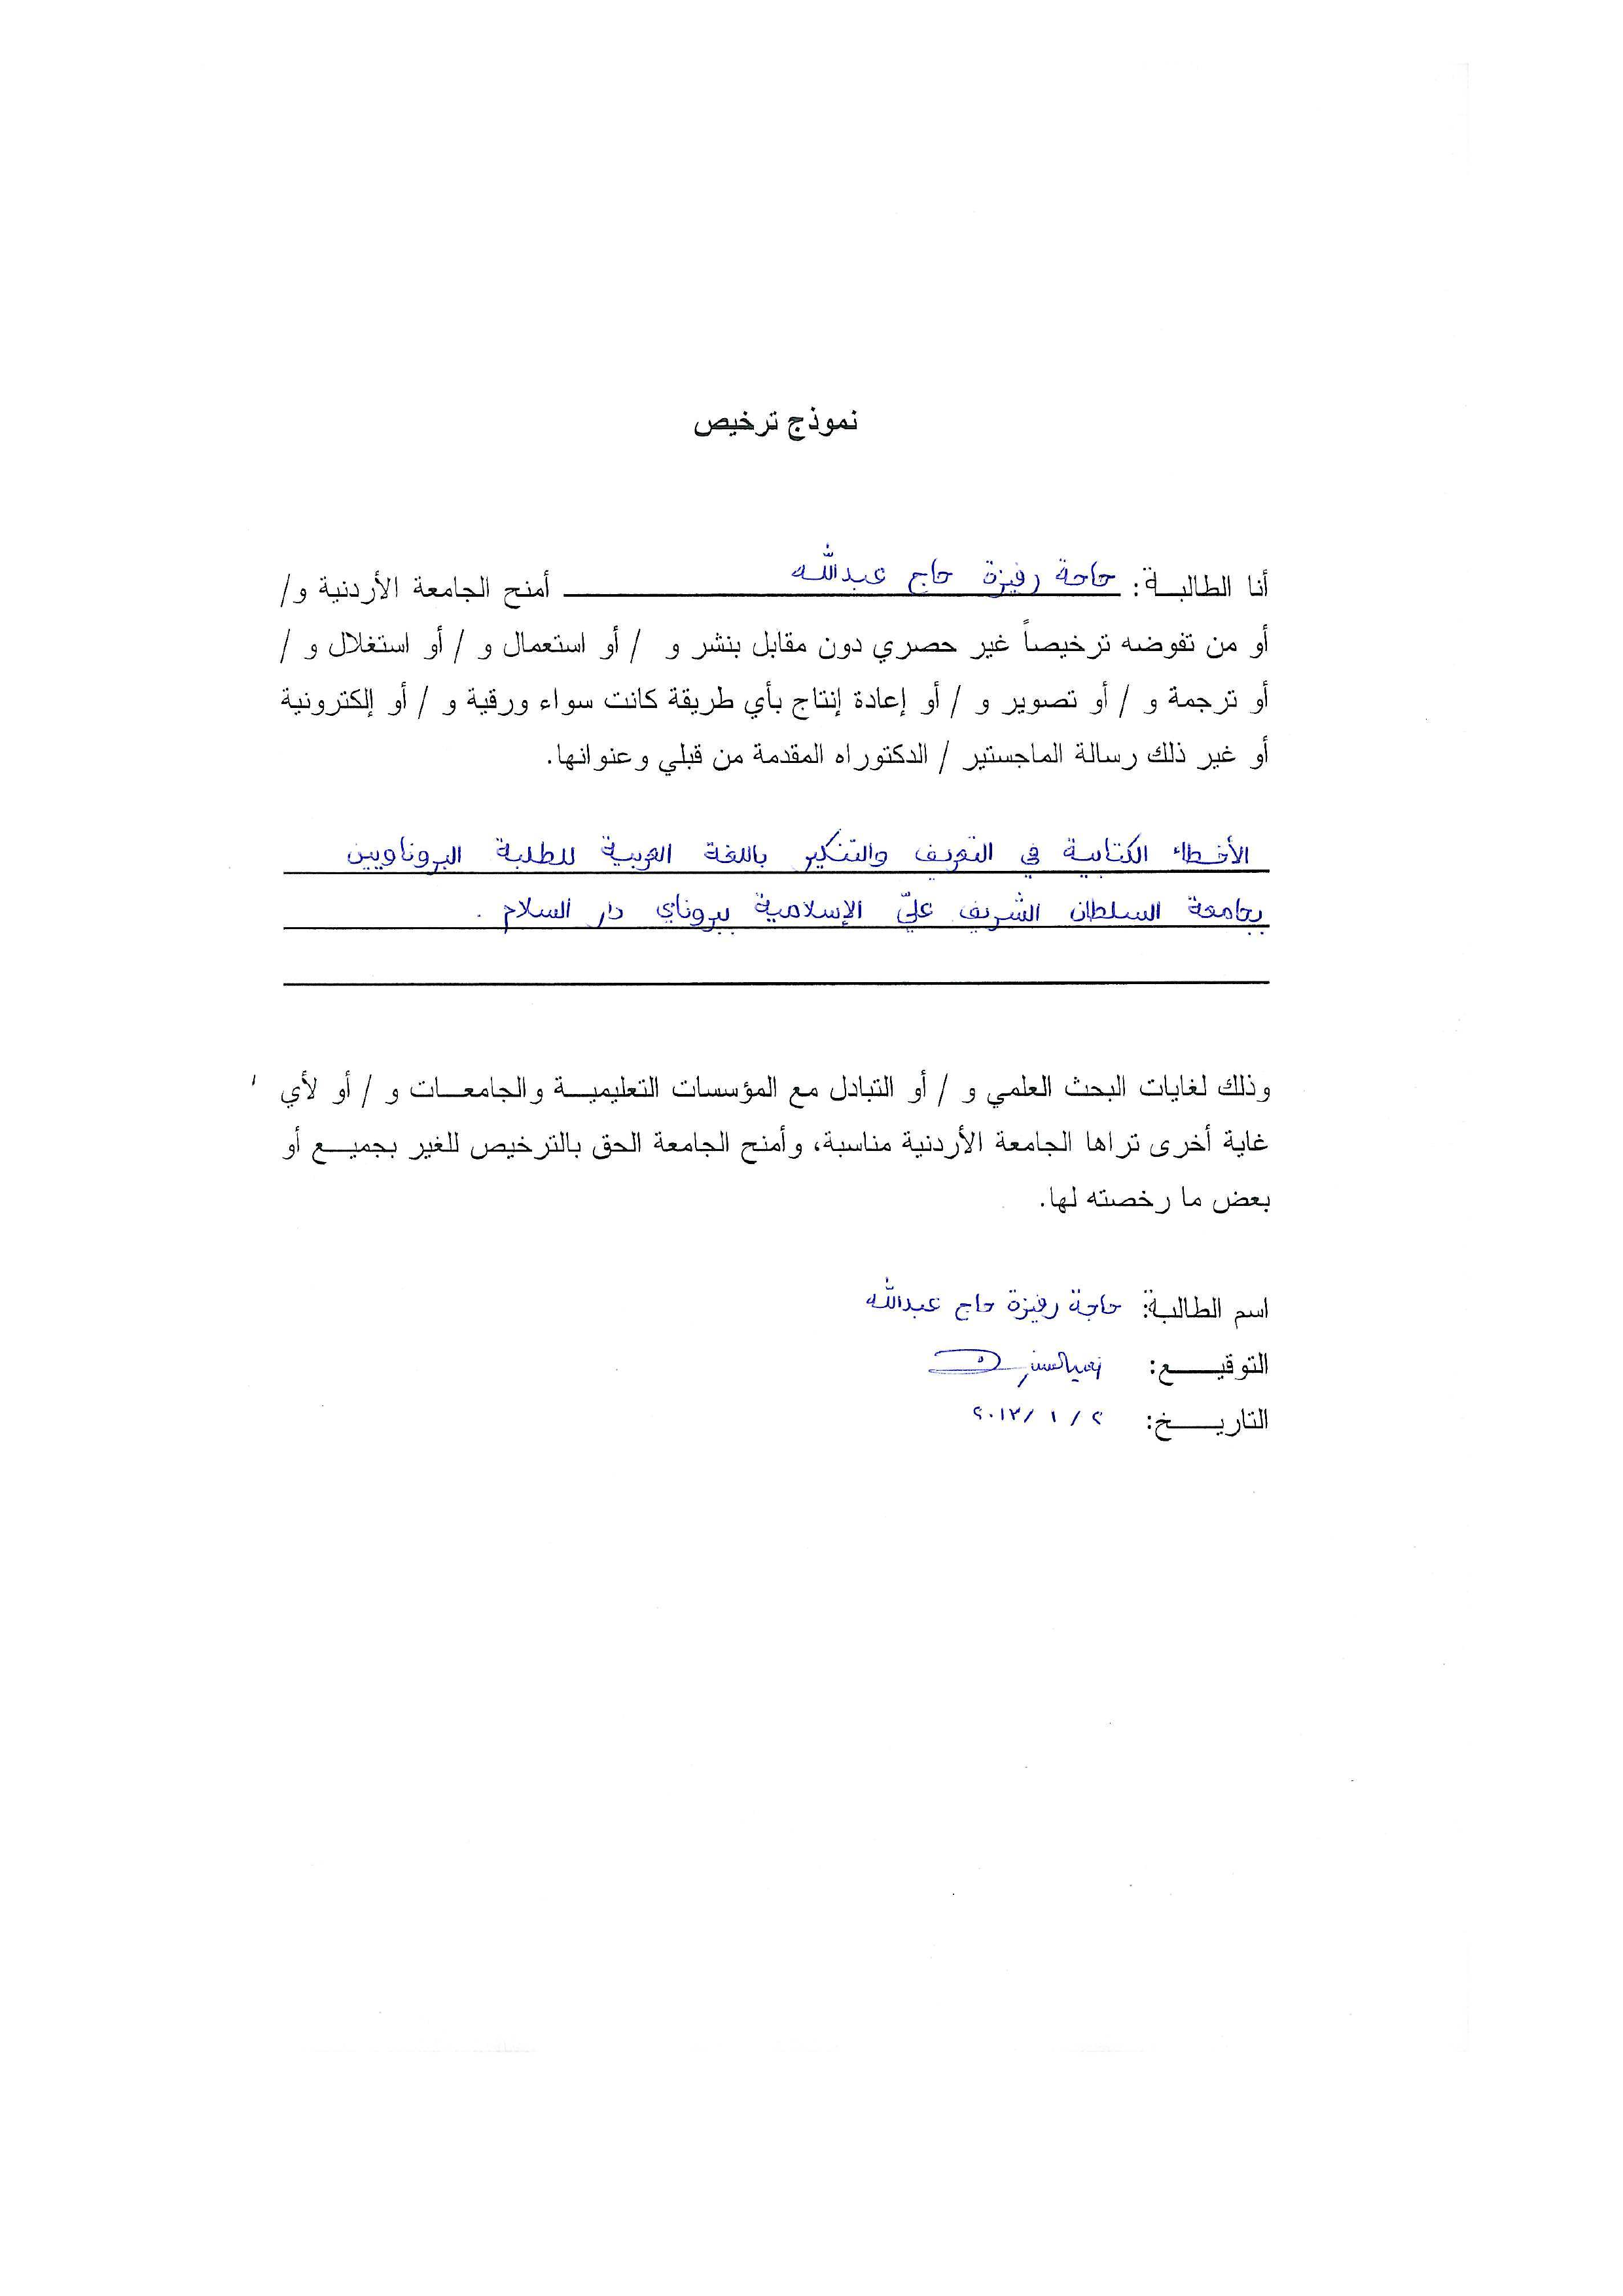 نموذج ترخيص
أنا الطالبة: حاجة رفيزة حاج عبدالله أمنح الجامعة الأردنية و/
أو من تفوضه ترخيصاً غير حصري دون مقابل بنشر و / أو استعمال و / أو استغلال و /
أو ترجمة و / أو تصوير و / أو إعادة إنتاج بأي طريقة كانت سواء ورقية و / أو إلكترونية
أو غير ذلك رسالة الماجستير / الدكتوراه المقدمة من قبلي وعنوانها.
الأخطاء الكتابية في التعريف والتنكير باللغة العربية للطلبة البروناويين
بجامعة السلطان الشريف عليّ الإسلامية ببروناي دار السلام .
وذلك لغايات البحث العلمي و / أو التبادل مع المؤسسات التعليمية والجامعات و / أو لأي
غاية أخرى تراها الجامعة الأردنية مناسبة، وأمنح الجامعة الحق بالترخيص للغير بجميع أو
بعض ما رخصته لها.
اسم الطالبة: حاجة رفيزة حاج عبدالله
التوقيع:
التاريخ: ٢ / ١ /٢٠١٣